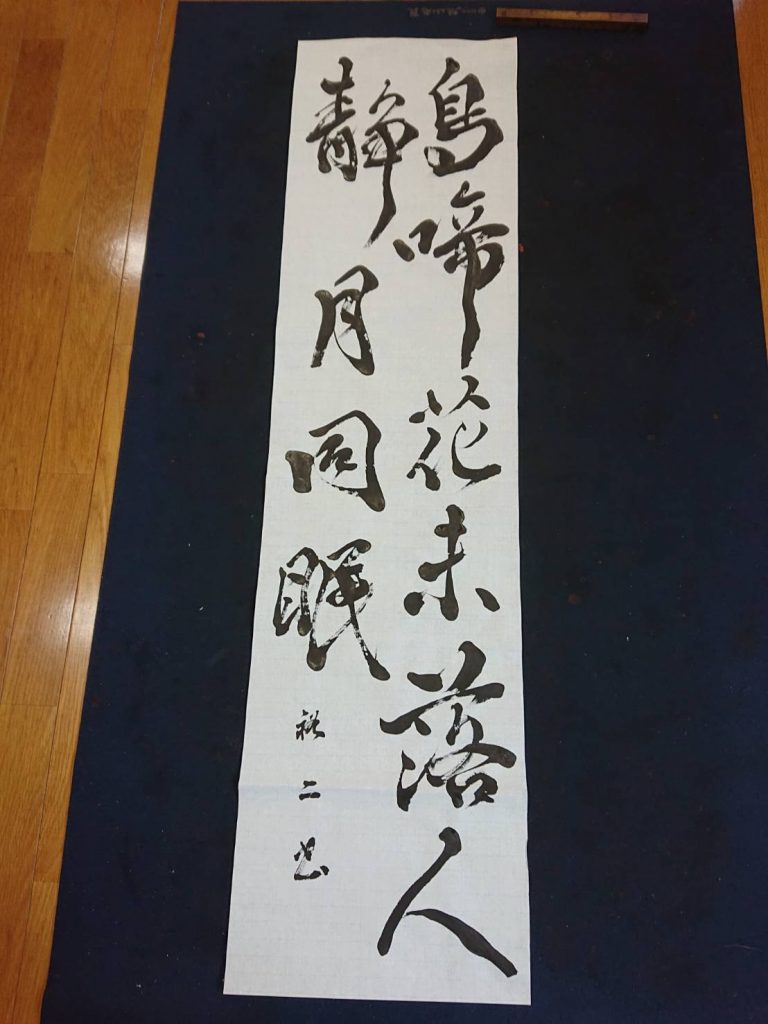 鳥啼花未落人
静月同眠
裕二書